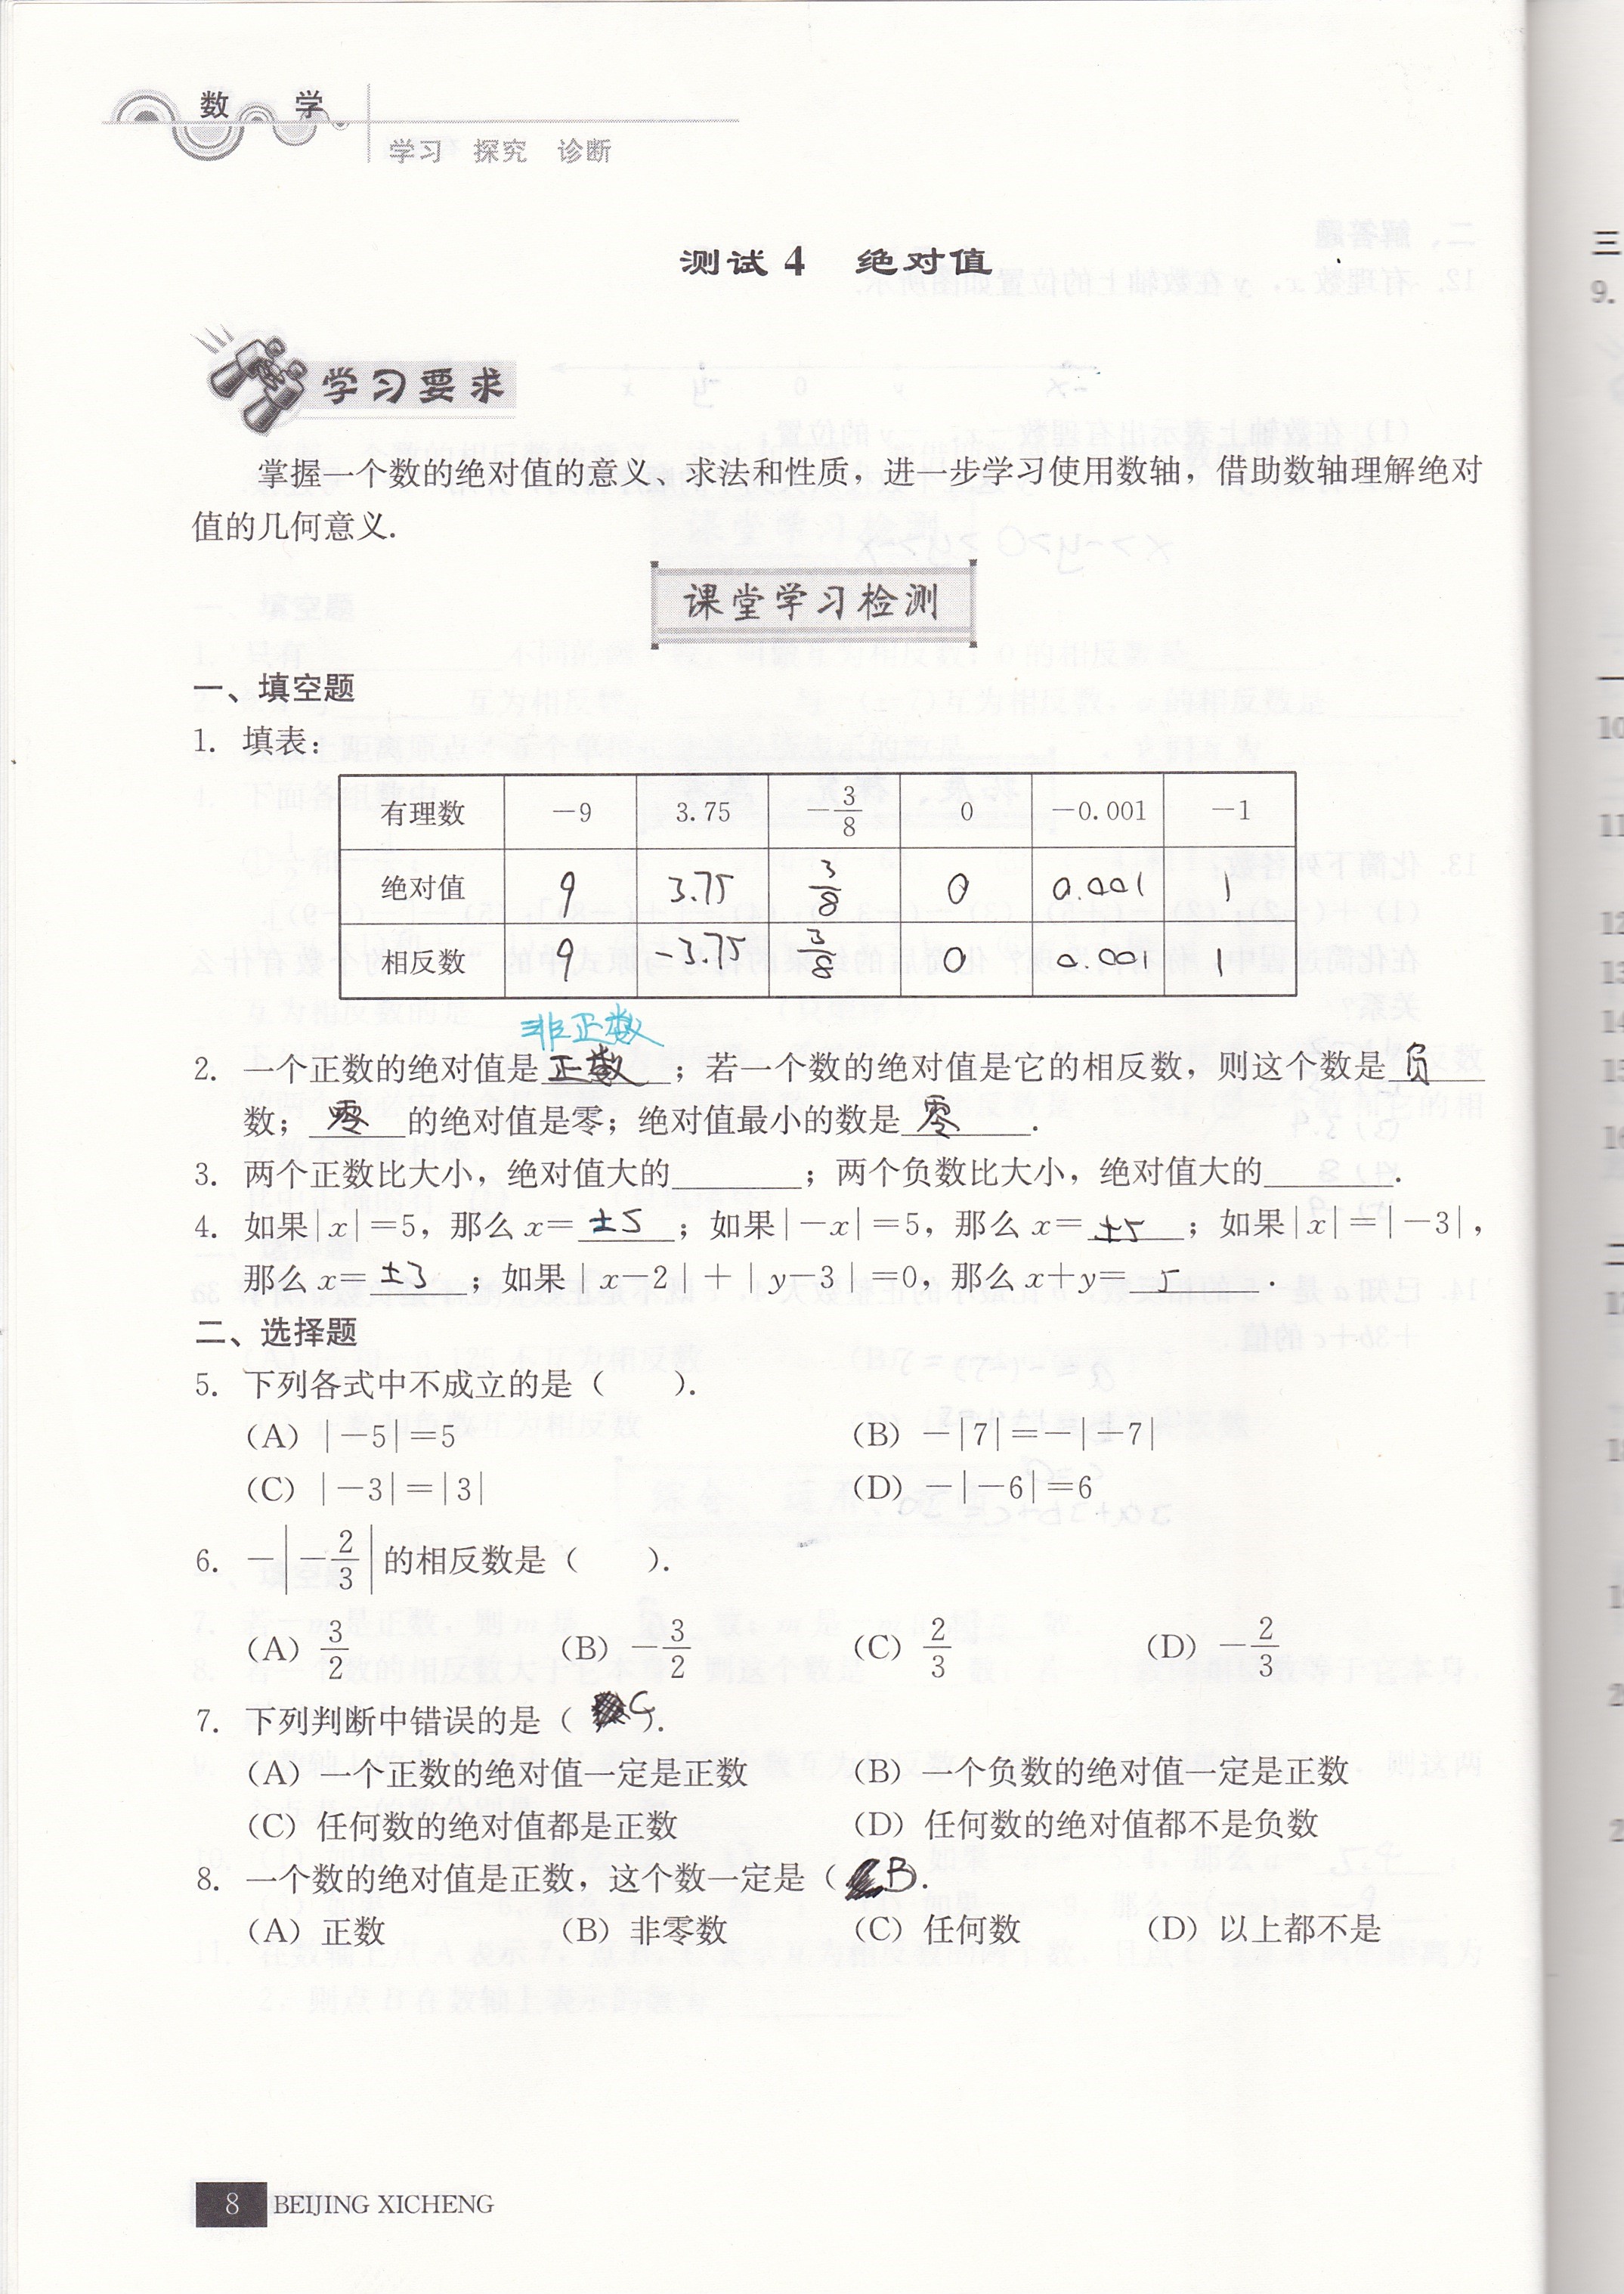 数 学
学习 探究 诊断
测试 4 绝对值
学习要求
掌握一个数的绝对值的意义、求法和性质，进一步学习使用数轴，借助数轴理解绝对
值的几何意义.
课堂学习检测
一、填空题
1. 填表：
有理数 －9 3.75 －3/8 0 －0.001 －1
绝对值 9 3.75 3/8 0 0.001 1
相反数 9 －3.75 3/8 0 0.001 1
非正数
2. 一个正数的绝对值是 正数 ；若一个数的绝对值是它的相反数，则这个数是 负
数； 零 的绝对值是零；绝对值最小的数是 零 .
3. 两个正数比大小，绝对值大的________；两个负数比大小，绝对值大的________.
4. 如果|x|＝5，那么 x＝ ±5 ；如果|－x|＝5，那么 x＝ ±5 ；如果|x|＝|－3|，
那么 x＝ ±3 ；如果|x－2|＋|y－3|＝0，那么 x＋y＝ 5 .
二、选择题
5. 下列各式中不成立的是（ ）.
(A) |－5|＝5 (B) －|7|＝－|－7|
(C) |－3|＝|3| (D) －|－6|＝6
6. －|－2/3|的相反数是（ ）.
(A) 3/2 (B) －3/2 (C) 2/3 (D) －2/3
7. 下列判断中错误的是（ C ）.
(A) 一个正数的绝对值一定是正数 (B) 一个负数的绝对值一定是正数
(C) 任何数的绝对值都是正数 (D) 任何数的绝对值都不是负数
8. 一个数的绝对值是正数，这个数一定是（ B ）.
(A) 正数 (B) 非零数 (C) 任何数 (D) 以上都不是
8 BEIJING XICHENG
三
9.